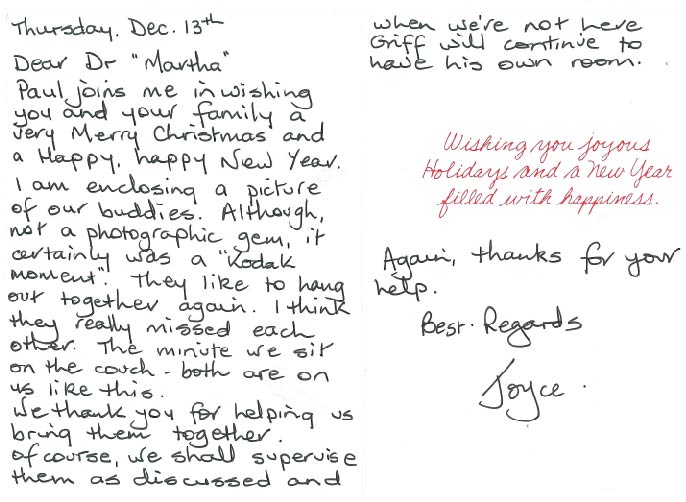 Thursday, Dec. 13th
Dear Dr "Martha"
Paul joins me in wishing
you and your family a
very Merry Christmas and
a Happy, happy New Year.
I am enclosing a picture
of our buddies. Although,
not a photographic gem, it
certainly was a "Kodak
moment". They like to hang
out together again. I think
they really missed each
other. The minute we sit
on the couch - both are on
us like this.
We thank you for helping us
bring them together.
Of course, we shall supervise
them as discussed and
when we're not here
Griff will continue to
have his own room.
Wishing you joyous
Holidays and a New Year
filled with happiness.
Again, thanks for your
help.
Best. Regards
Joyce.